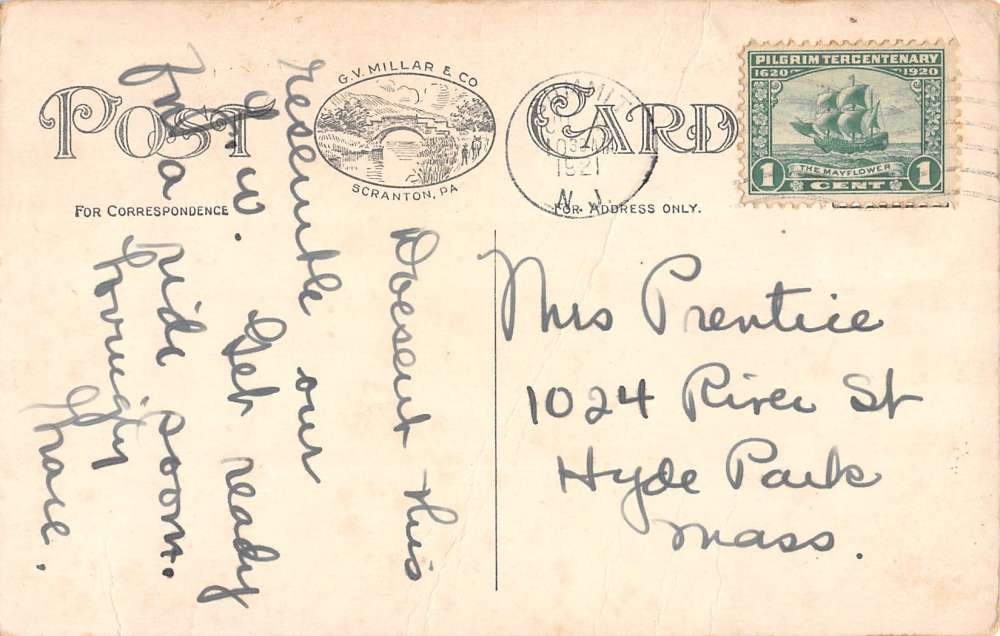 POST CARD
G.V. MILLAR & CO
SCRANTON, PA
FOR CORRESPONDENCE
FOR ADDRESS ONLY.
PILGRIM TERCENTENARY
1620 1920
THE MAYFLOWER
1 CENT 1
1921
N.J.
Doesent this
resemble our
Get ready
for a ride soon.
Lovingly
Grace.
Mrs Prentice
1024 River St
Hyde Park
Mass.